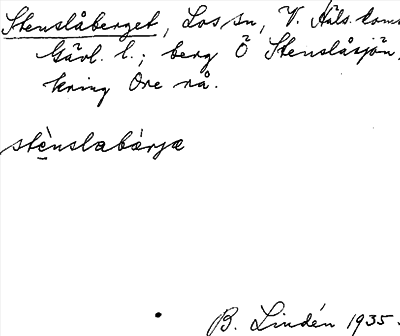 Stenslåberget, Los sn, V. Häls. koms
Gävl. l.; berg Ö Stenslåsjön,
kring Ore rå.
stènslabærjæ
B. Lindén 1935.